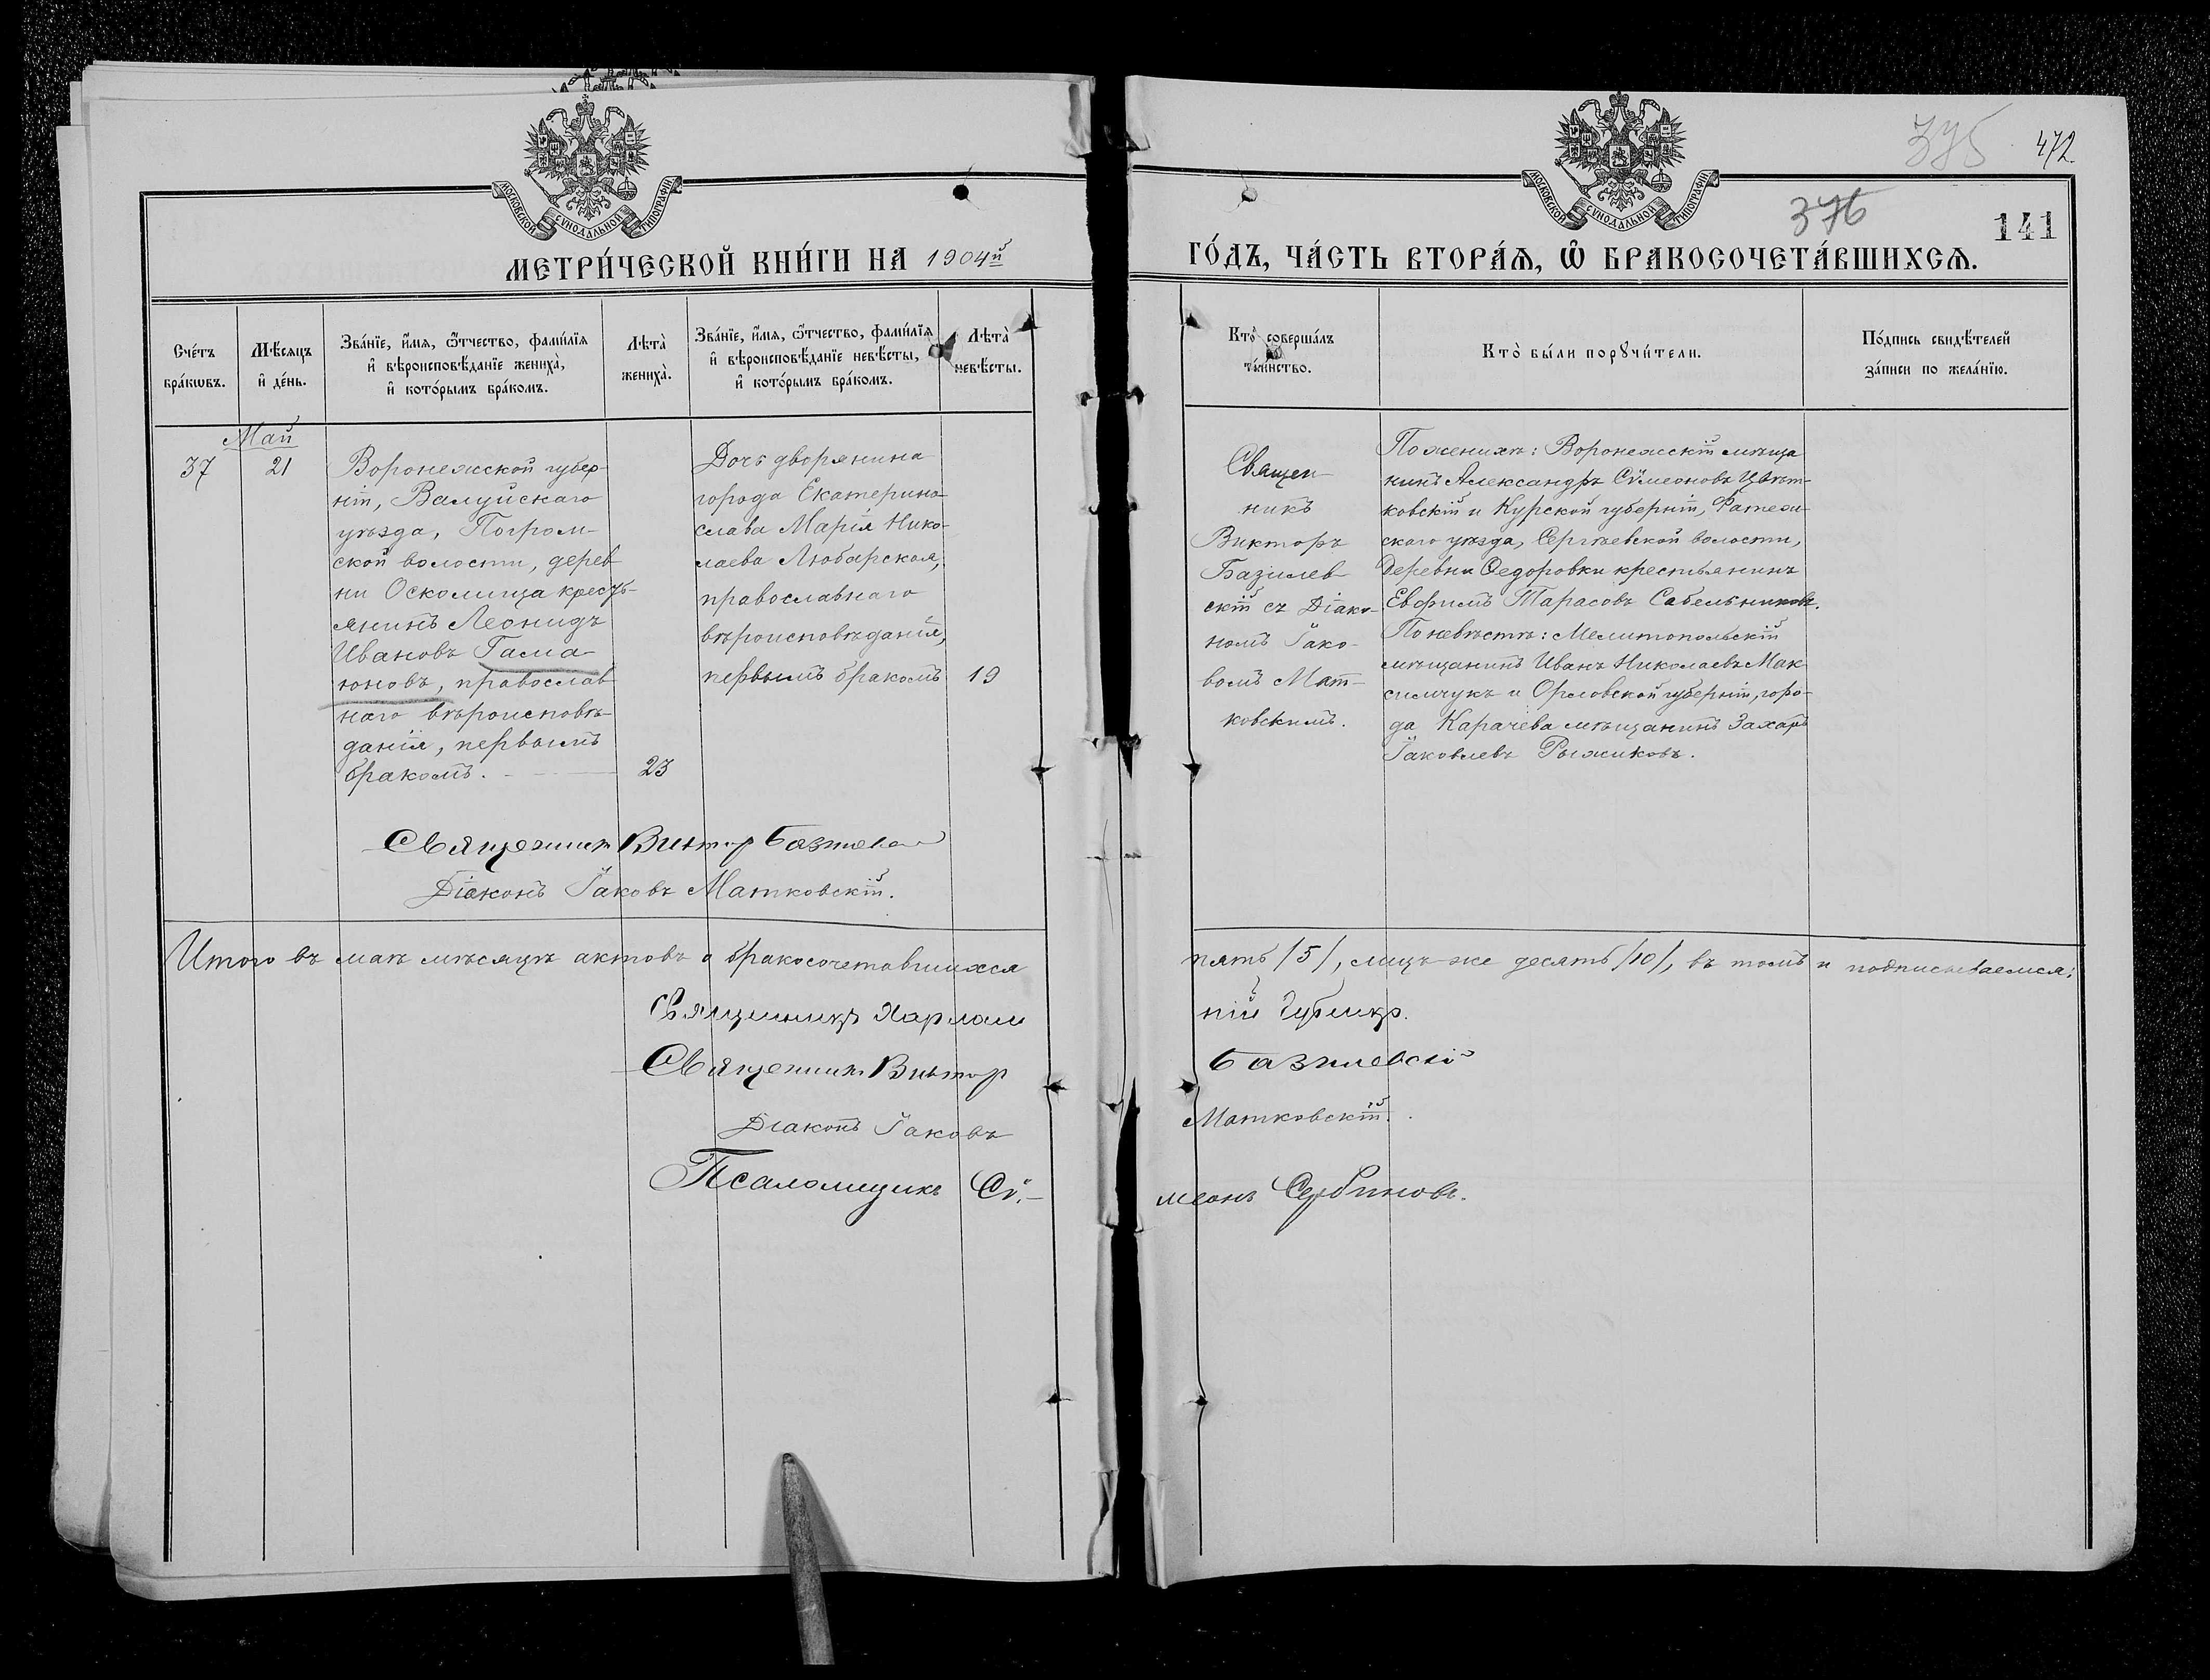 375
472
376
141
МОСКОВСКОЙ СѴНОДАЛЬНОЙ ТИПОГРАФІИ
МОСКОВСКОЙ СѴНОДАЛЬНОЙ ТИПОГРАФІИ
МЕТРИ́ЧЕСКОЙ КНИ́ГИ НА 1904й
ГО́ДЪ, ЧА́СТЬ ВТОРА́Ѧ, Ѽ БРАКОСОЧЕТА́ВШИХСѦ.
Сче́тъ
бра́кѡвъ.
Мѣ́сяцъ
и҆ де́нь.
Зва́нїе, и҆́мя, ѻ҆́тчество, фами́лїя
и҆ вѣроисповѣ́данїе жениха̀,
и҆ кото́рымъ бра́комъ.
Лѣта̀
жениха̀.
Зва́нїе, и҆́мя, ѻ҆́тчество, фами́лїя
и҆ вѣроисповѣ́данїе невѣ́сты,
и҆ кото́рымъ бра́комъ.
Лѣта̀
невѣ́сты.
Кто̀ соверша́лъ
та́инство.
Кто̀ бы́ли порꙋчи́тели.
По́дпись свидѣ́телей
за́писи по жела́нїю.
Май
37
21
Воронежской губер-
ніи, Валуйскаго
уѣзда, Погром-
ской волости, дерев
ни Осколища кресть-
янинъ Леонидъ
Ивановъ Гама-
юновъ, православ
наго вѣроисповѣ-
данія, первымъ
бракомъ.
23
Дочь дворянина
города Екатерино-
слава Марія Нико-
лаева Любарская,
православнаго
вѣроисповѣданія,
первымъ бракомъ
19
Священ-
никъ
Викторъ
Базилев-
скій съ Діако-
номъ Іако-
вомъ Мат-
ковскимъ.
По женихѣ: Воронежскій мѣща
нинъ Александръ Сѵмеоновъ Цвѣт-
ковскій и Курской губерніи, Фатеж-
скаго уѣзда, Сергѣевской волости,
Деревни Ѳедоровки крестьянинъ
Евфимъ Тарасовъ Сабельниковъ.
По невѣстѣ: Мелитопольскій
мѣщанинъ Иванъ Николаевъ Мак
симчукъ и Орловской губерніи, горо-
да Карачева мѣщанинъ Захаръ
Іаковлевъ Рыжиковъ.
Священникъ Виктор Базилев
Діаконъ Іаковъ Матковскій.
Итого въ маѣ мѣсяцѣ актовъ о бракосочетавшихся пять /5/, лицъ-же десять /10/, въ томъ и подписываемся:
Священникъ Харлам пій
Священникъ Виктор Базилевскій
Діаконъ Іаковъ Матковскій.
Псаломщикъ Сѵ- меонъ Сербиновъ.